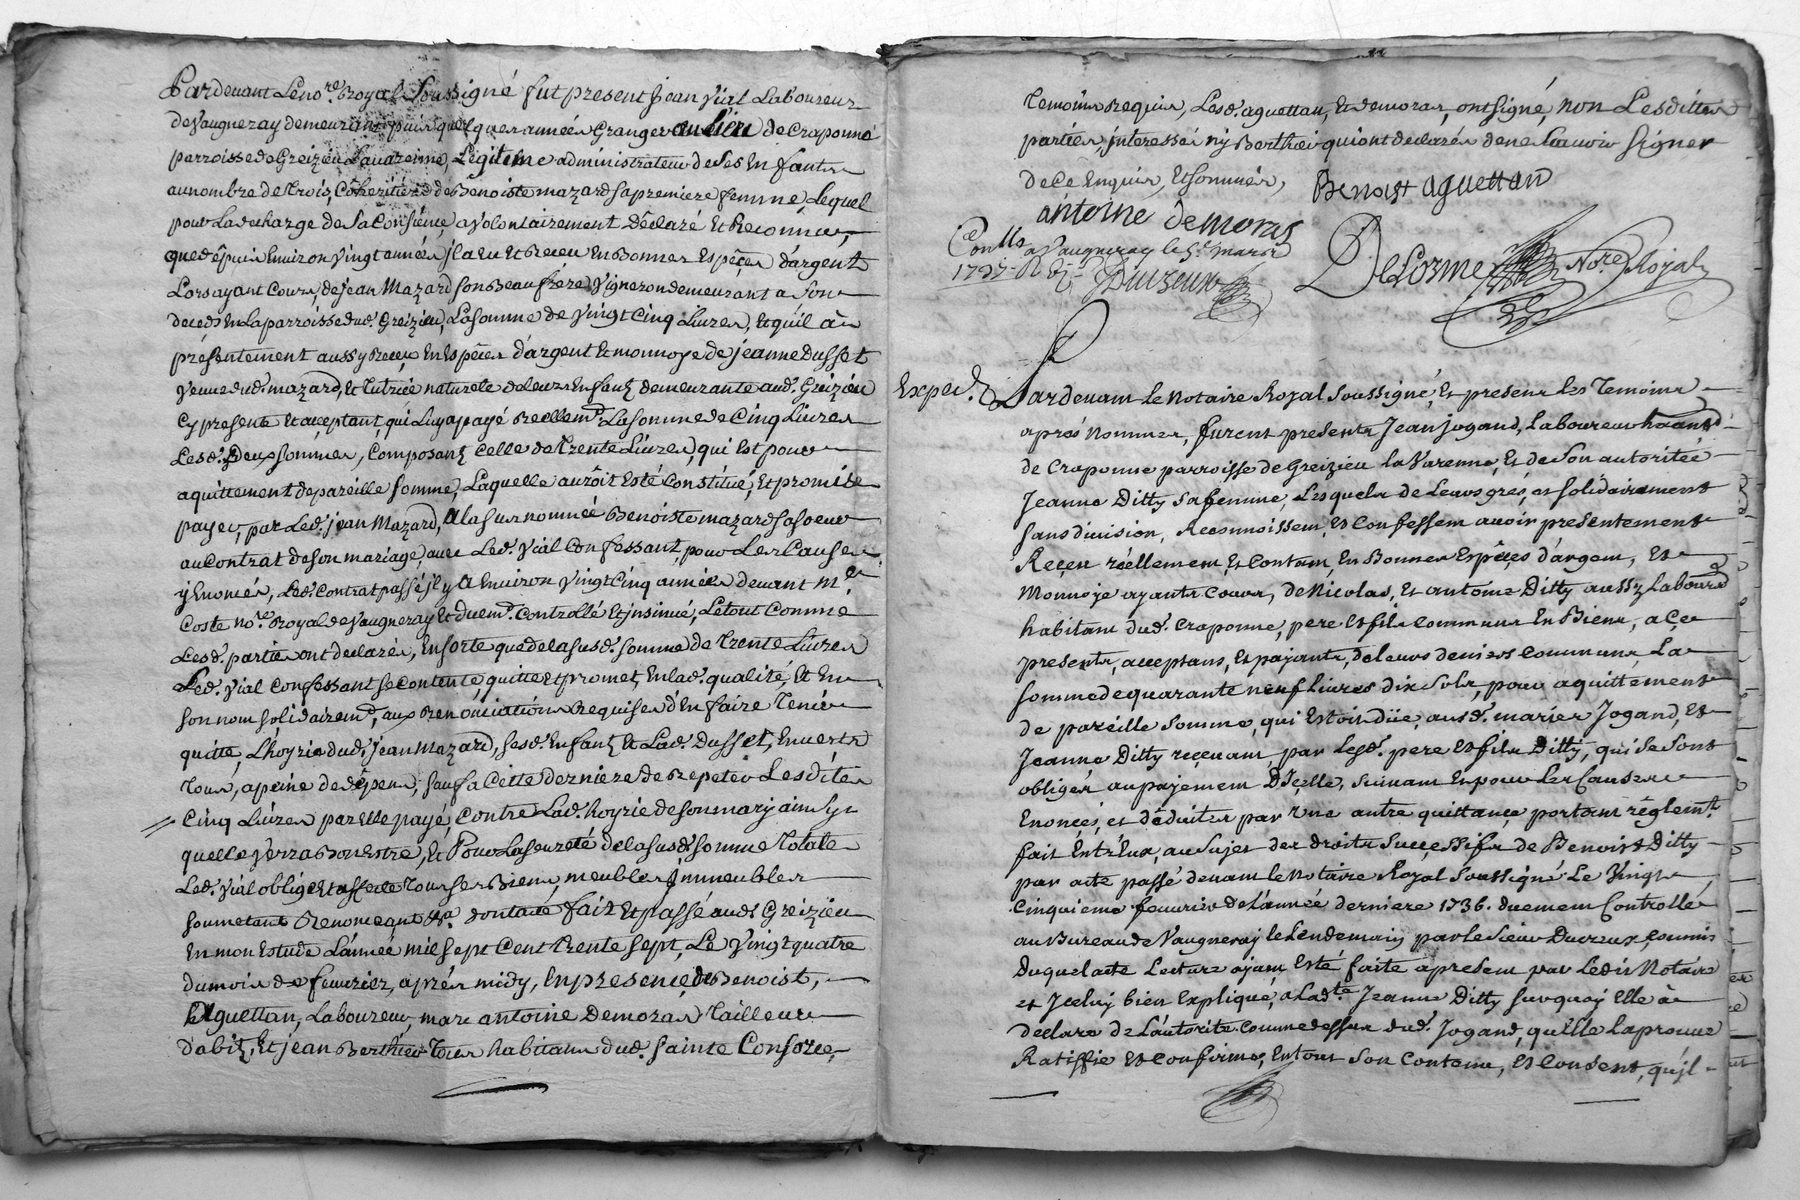 Pardevant Le no.re Royal Soussigné fut present Jean Vial Laboureur
de Vaugneray demeurant puis quelques années Granger au lieu de Craponne
parroisse de Greizieu Lavarenne, Legitime administrateur de ses Enfants
au nombre de trois, Cohéritiers de Benoiste mazard sa premiere femme, Lequel
pour La decharge de Sa Consience a volontairement Déclaré Et Reconnu,
que dépuis Environ vingt années jl a Eu Et Receu En Bonnes Espéces d'argent
Lors ayant Cours, de jean Mazard son Beaufrére, Vigneron demeurant a Son
deceds En La parroisse dud. Greizieu, La somme de vingt Cinq Livres, Et qu'il à
présentement aussy Receu En Espéces d'argent Et monnoye de jeanne Dusset
veuve dud. mazard, Et tutrice naturele de leurs Enfants demeurante aud. Greizieu
Cy presente Et acceptant, qui Luy a payé Réellem.t La somme de Cinq Livres
Lesd. deux sommes, Composant Celle de trente Livres, qui Est pour
aquittement de pareille somme, Laquelle auroit Esté Constitué, Et promise
payer, par Led. jean Mazard, a la surnommée Benoiste mazard sa soeur
au Contrat de son mariage, avec Led. Vial Confessant, pour Les Causes
y Enoncés, Led. Contrat passé jl y a Environ Vingt Cinq années devant M.e
Coste no.re Royal de Vaugneray Et duem.t Controllé Et jnsinué, Le tout Comme
Lesd. parties ont declarés, En sorte que de la susd. somme de trente Livres
Led. Vial Confessant se contente, quitte Et promet, En lad. qualité, Et En
son nom solidairem.t, aux Renonciations Requises d'En faire Tenir
quitte, L'hoyrie dud. jean Mazard, sesd. Enfans Et Lad. Dusset, Envers
Tous, a peine de dépens, sauf a Cette Derniere de Repeter Lesdites
Cinq Livres par Elle payé, Contre Lad. hoyrie de son mary ainsy
quelle verra Bon Estre, Et Pour La seureté de la susd. somme Totale
Led. Vial oblige Et affecte tous ses Biens, meubles Jmmeubles
soumetant Renonceant &a dont acte fait Et passé aud. Greizieu
En mon Estude L'année mil sept Cent trente sept, Le Vingt quatre
du mois de fevrier, aprés midy, En presence, de Benoist,
Aguettan, Laboureur, marc antoine Demoras Tailleur
d'abit, Et jean Berthier tous habitans dud. Sainte Consorce,
Temoins Requis, Lesd. aguettan, Et demoras, ont signé, non Lesdites
parties, jnteressés ny Berthier qui ont declarés de ne scavoir signer
de Ce Enquis, Et sommés,
Benoist aguettan
antoine demoras
Con.llé
a Vaugneray le 5.e mars
1737
Delorme No.re Royal
Exped.é
Pardevant Le Notaire Royal Soussigné, Et presens les Temoins
aprés Nommés, furent presents Jean Jogand, Laboureur habitant
de Craponne parroisse de Greizieu la Varenne, Et de Son autoritée
Jeanne Ditty Sa femme, Lesquels de Leurs grés, et Solidairement
Sans division, Reconnoissent, Et Confessent avoir presentement
Reçeu réellement, Et Contant, En Bonnes Espéces d'argent, Et
Monnoye ayants Cours, de Nicolas, Et antoine Ditty aussy Laboureurs
habitans dud. Craponne, pere Et fils Communs En Biens, a Ce
presents, acceptans, Et payants, de leurs deniers Communs, La
Somme de quarante neuf livres dix Sols, pour aquittement
de pareille Somme, qui Estoit düe, ausd. mariés Jogand, Et
Jeanne Ditty reçevant, par Lesd. pere Et fils Ditty, qui se Sont
obligés au payement D'içelle, Suivant Et pour Les Causes
Enonceés, et déduites par Une autre quittançe portant réglem.t
fait Entr'Eux, au Sujet des droits Suççessifs de Benoist Ditty
par acte passé devant le Notaire Royal Soussigné Le Vingt
Cinquieme fevrier de L'année derniere 1736. duement Controllé
au Bureau de Vaugneray le Lendemain par le Sieur Ducreux, Commis
Duquel acte Lecture ayant Esté faite a present, par Ledit Notaire
et Jceluy bien Expliqué, a Lad.te Jeanne Ditty Surquoy Elle à
déclaré de L'autorité Comme dessus dud. Jogand, qu'Elle L'aprouve
Ratiffie Et Confirme, En tout Son Contenu, Et Consent, qu'jl